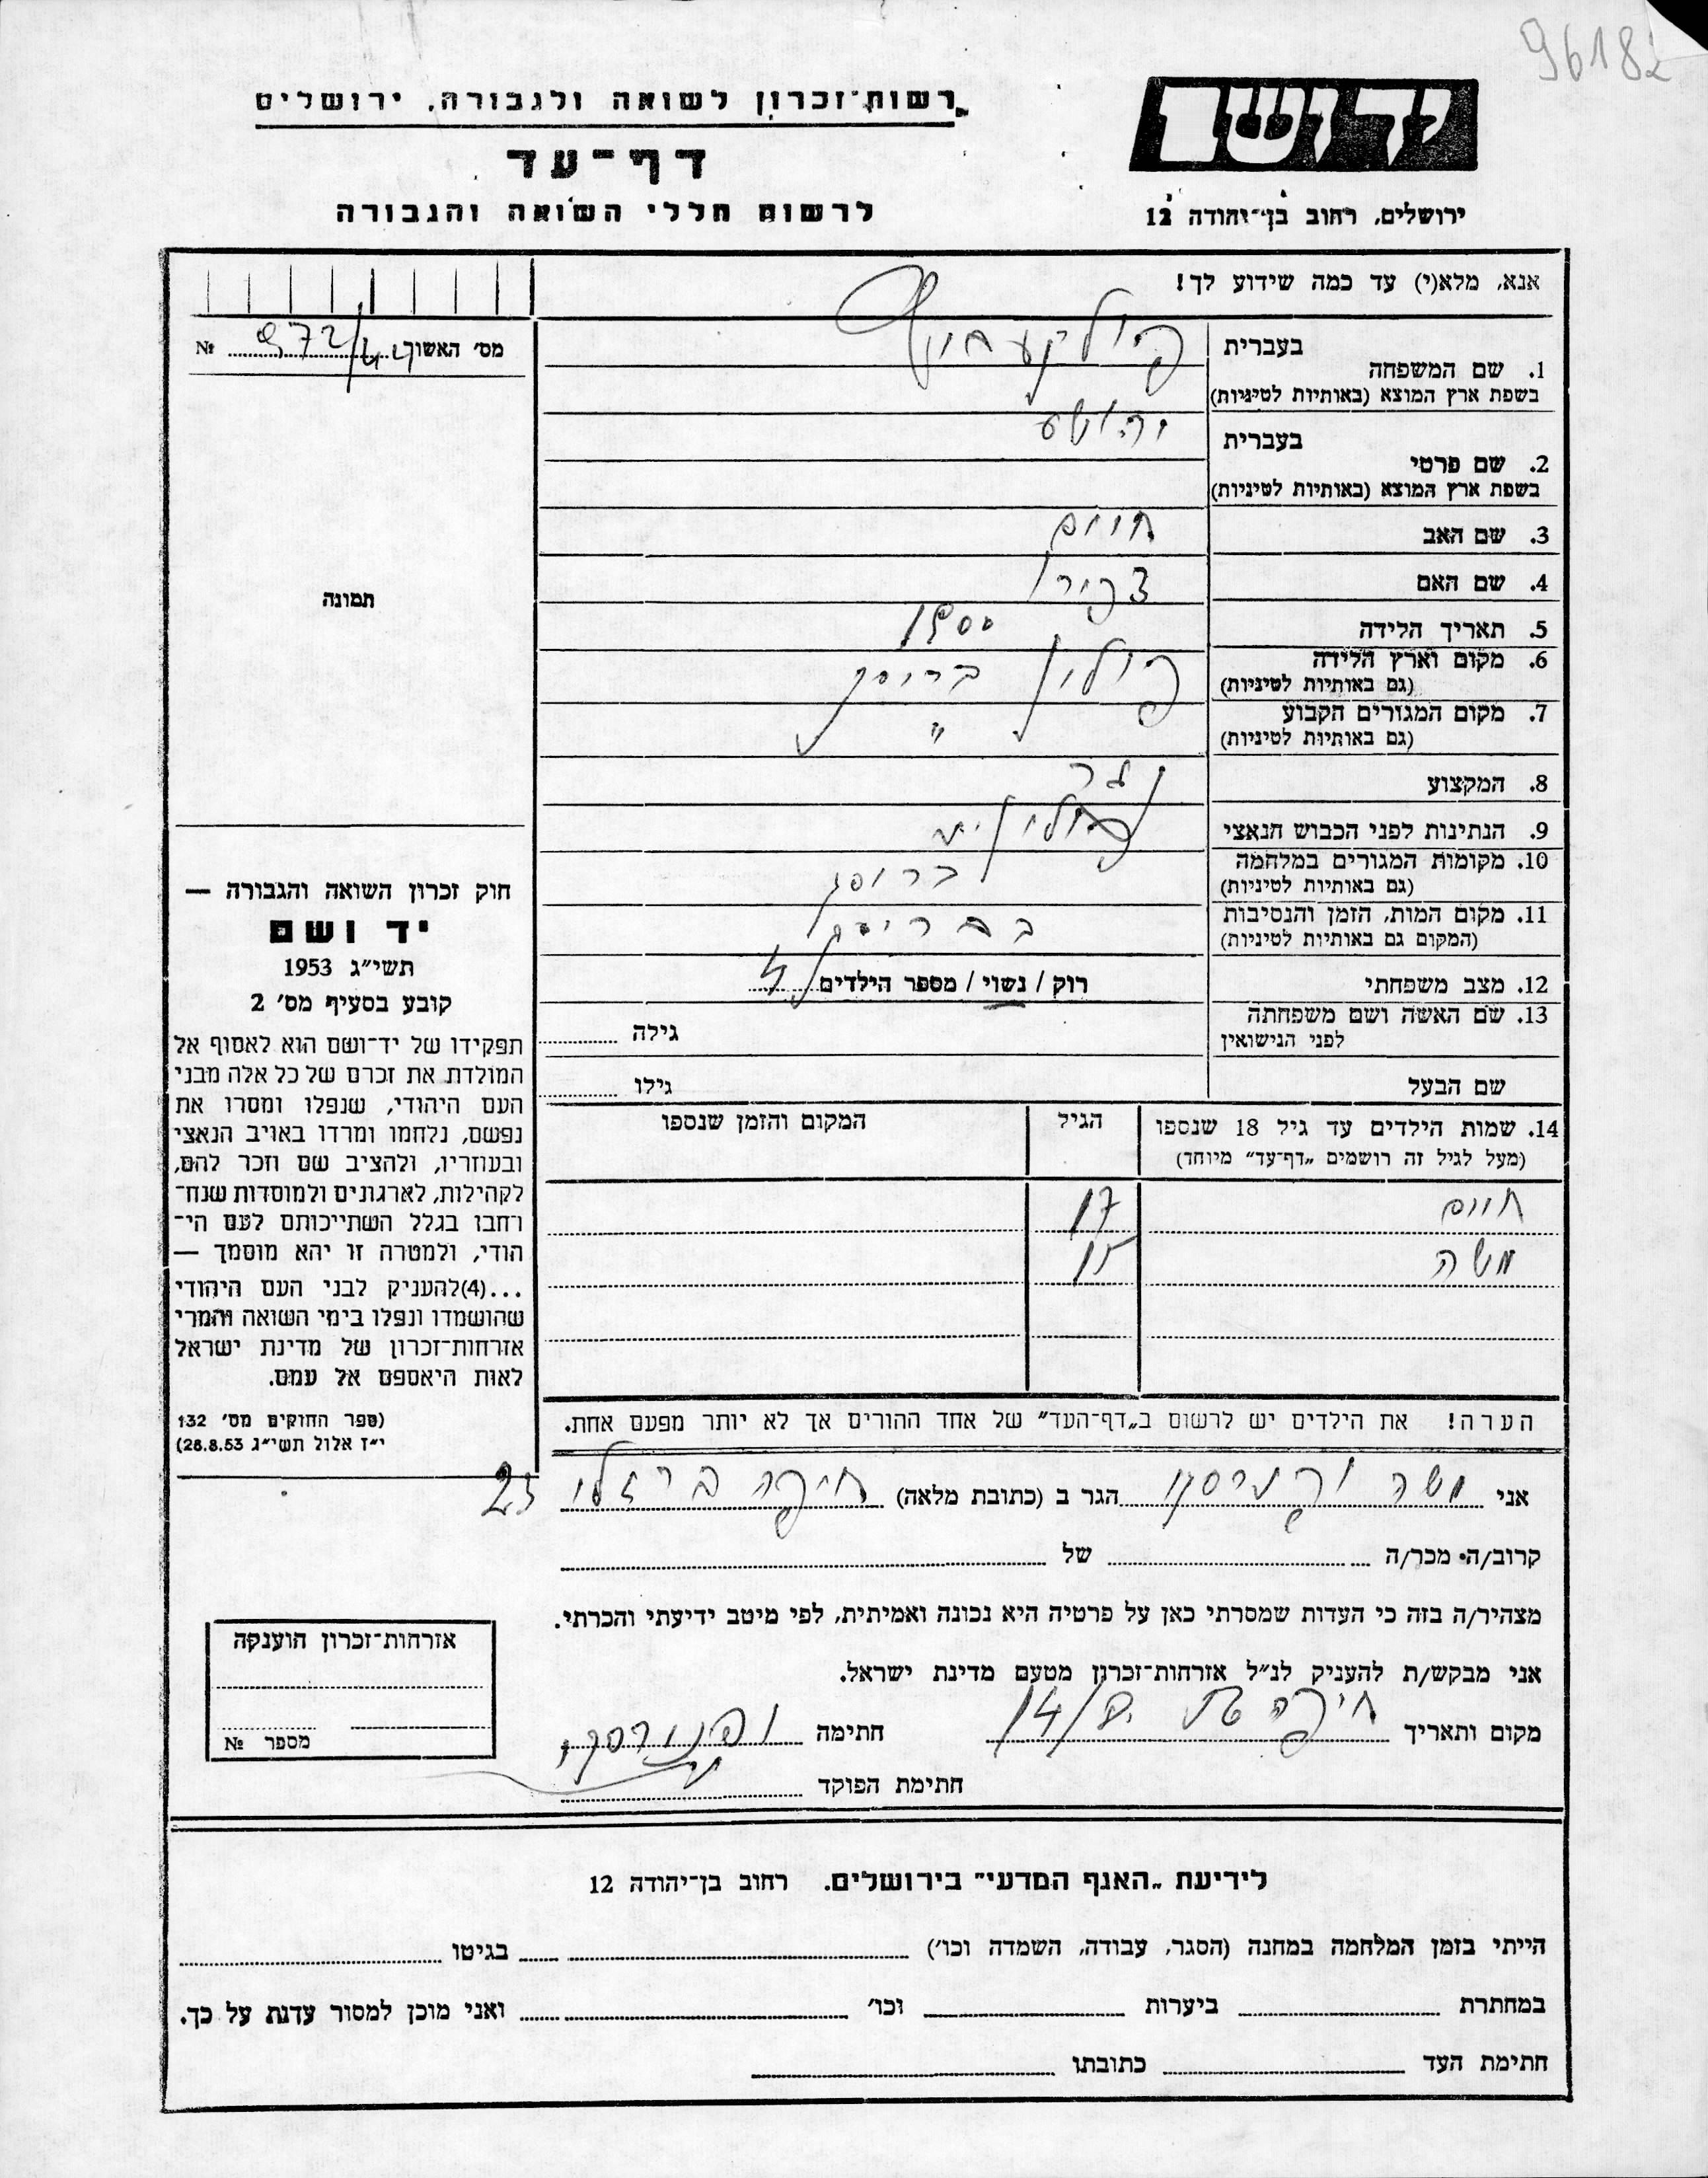 96182
יד ושם
ירושלים, רחוב בן-יהודה 12
רשות-זכרון לשואה ולגבורה, ירושלים
דף-עד
לרשום חללי השואה והגבורה
אנא, מלא(י) עד כמה שידוע לך!
מס' האשוך № 972/
1. שם המשפחה בעברית
בשפת ארץ המוצא (באותיות לטיניות)
2. שם פרטי בעברית יהושע
בשפת ארץ המוצא (באותיות לטיניות)
3. שם האב חיים
4. שם האם
5. תאריך הלידה 1900
6. מקום וארץ הלידה פולין בריסק
(גם באותיות לטיניות)
7. מקום המגורים הקבוע "
(גם באותיות לטיניות)
8. המקצוע נגר
9. הנתינות לפני הכבוש הנאצי פולנית
10. מקומות המגורים במלחמה בריסק
(גם באותיות לטיניות)
11. מקום המות, הזמן והנסיבות בבריסק
(המקום גם באותיות לטיניות)
12. מצב משפחתי רוק / נשוי / מספר הילדים 4
13. שם האשה ושם משפחתה
לפני הנישואין גילה
שם הבעל גילו
14. שמות הילדים עד גיל 18 שנספו הגיל המקום והזמן שנספו
(מעל לגיל זה רושמים "דף-עד" מיוחד)
חיים 17
משה 15
הערה! את הילדים יש לרשום ב"דף-העד" של אחד ההורים אך לא יותר מפעם אחת.
תמונה
חוק זכרון השואה והגבורה —
יד ושם
תשי"ג 1953
קובע בסעיף מס' 2
תפקידו של יד-ושם הוא לאסוף אל
המולדת את זכרם של כל אלה מבני
העם היהודי, שנפלו ומסרו את
נפשם, נלחמו ומרדו באויב הנאצי
ובעוזריו, ולהציב שם וזכר להם,
לקהילות, לארגונים ולמוסדות שנח-
רחבו בגלל השתייכותם לעם הי-
הודי, ולמטרה זו יהא מוסמך —
...(4)להעניק לבני העם היהודי
שהושמדו ונפלו בימי השואה והמרי
אזרחות-זכרון של מדינת ישראל
לאות היאספם אל עמם.
(ספר החוקים מס' 132
י"ז אלול תשי"ג 28.8.53)
אני משה הגר ב (כתובת מלאה) חיפה ברזלי 23
קרוב/ה• מכר/ה של
מצהיר/ה בזה כי העדות שמסרתי כאן על פרטיה היא נכונה ואמיתית, לפי מיטב ידיעתי והכרתי.
אני מבקש/ת להעניק לנ"ל אזרחות-זכרון מטעם מדינת ישראל.
מקום ותאריך חיפה חתימה
חתימת הפוקד
אזרחות-זכרון הוענקה
מספר №
לידיעת "האגף המדעי" בירושלים. רחוב בן-יהודה 12
הייתי בזמן המלחמה במחנה (הסגר, עבודה, השמדה וכו') בגיטו
במחתרת ביערות וכו' ואני מוכן למסור עדות על כך.
חתימת העד כתובתו